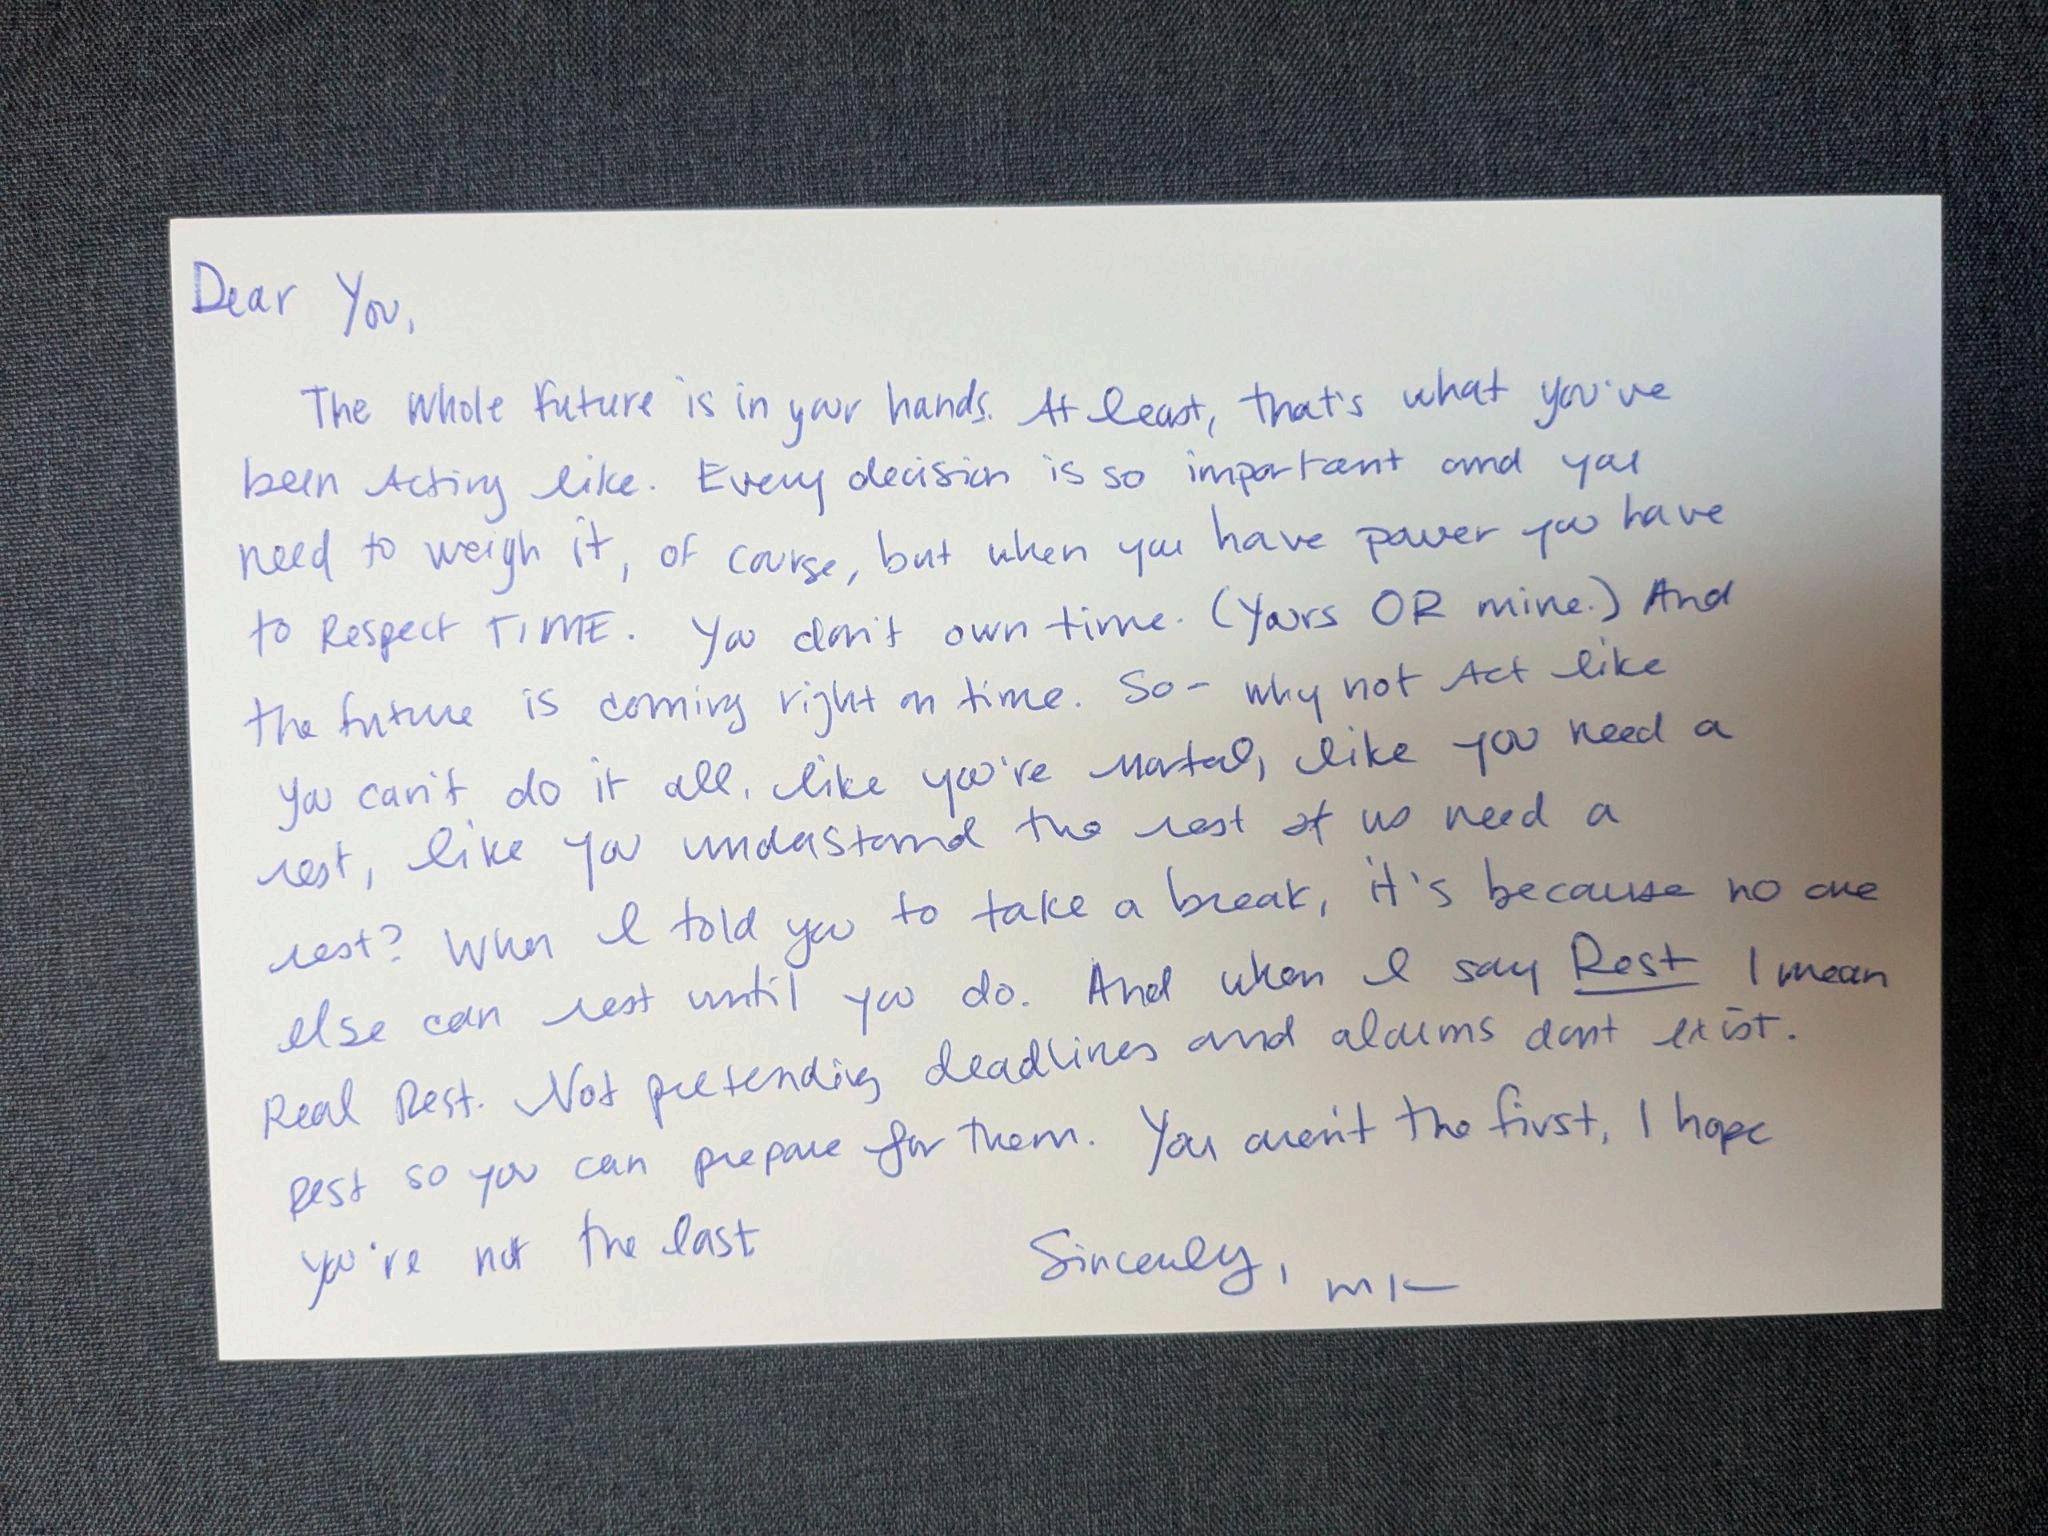 Dear You,
The whole future is in your hands. At least, that's what you've
been Acting like. Every decision is so important and you
need to weigh it, of course, but when you have power you have
to Respect TIME. You don't own time. (Yours OR mine.) And
the future is coming right on time. So - why not Act like
you can't do it all, like you're mortal, like you need a
rest, like you understand the rest of us need a
rest? When I told you to take a break, it's because no one
else can rest until you do. And when I say Rest I mean
Real Rest. Not pretending deadlines and alarms dont exist.
Rest so you can prepare for them. You aren't the first, I hope
you're not the last
Sincerely, MK